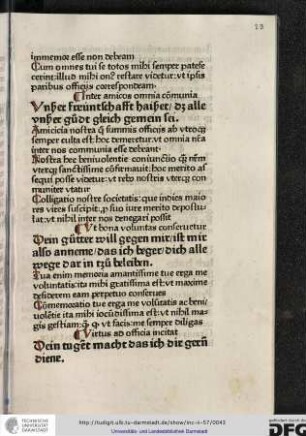 23
immemor esse non debeam
Cum omnes tui se totos mihi semper patefe
cerint: illud mihi onꝰ restare videtur: vt ipsis
paribus officijs correspondeam.
Inter amicos omnia cōmunia
Vnßer freüntschafft haißet / dz alle
vnßer gůdt gleich gemein sei.
Amicicia nostra ꝗ̄ summis officijs ab vtroqꝫ
semper culta est: hoc demeretur: vt omnia nr̄a
inter nos communia esse debeant.
Nostra hec beniuolentie coniunctio quē nr̄m
vterqꝫ sanctissime cōfirmauit: hoc merito as
sequi posse videtur: vt rebo nostris vterqꝫ com
muniter vtatur
Colligatio nostre societatis: que indies maio
res vires suscipit: ꝓ suo iure merito depostu
lat: vt nihil inter nos denegari possit
Vt bona voluntas conseruetur
Dein gůtter will gegen mir: ist mir
also anneme / das ich beger / dich alle
wege dar in trů beleiben.
Tua enim memoria amantissime tue erga me
voluntatis: ita mihi gratissima est: vt maxime
desiderem eam perpetuo conserues
Cōmemoratio tue erga me volūtatis ac beni
uolētie ita mihi iocūdissima est: vt nihil ma
gis gestiam: ꝗ̄ ꝙ vt facis: me semper diligas
Virtus ad officia incitat
Dein tuget macht das ich dir gern
diene.
TECHNISCHE
UNIVERSITÄT
DARMSTADT
http://tudigit.ulb.tu-darmstadt.de/show/inc-ii-57/0043
Universitäts- und Landesbibliothek Darmstadt
DFG